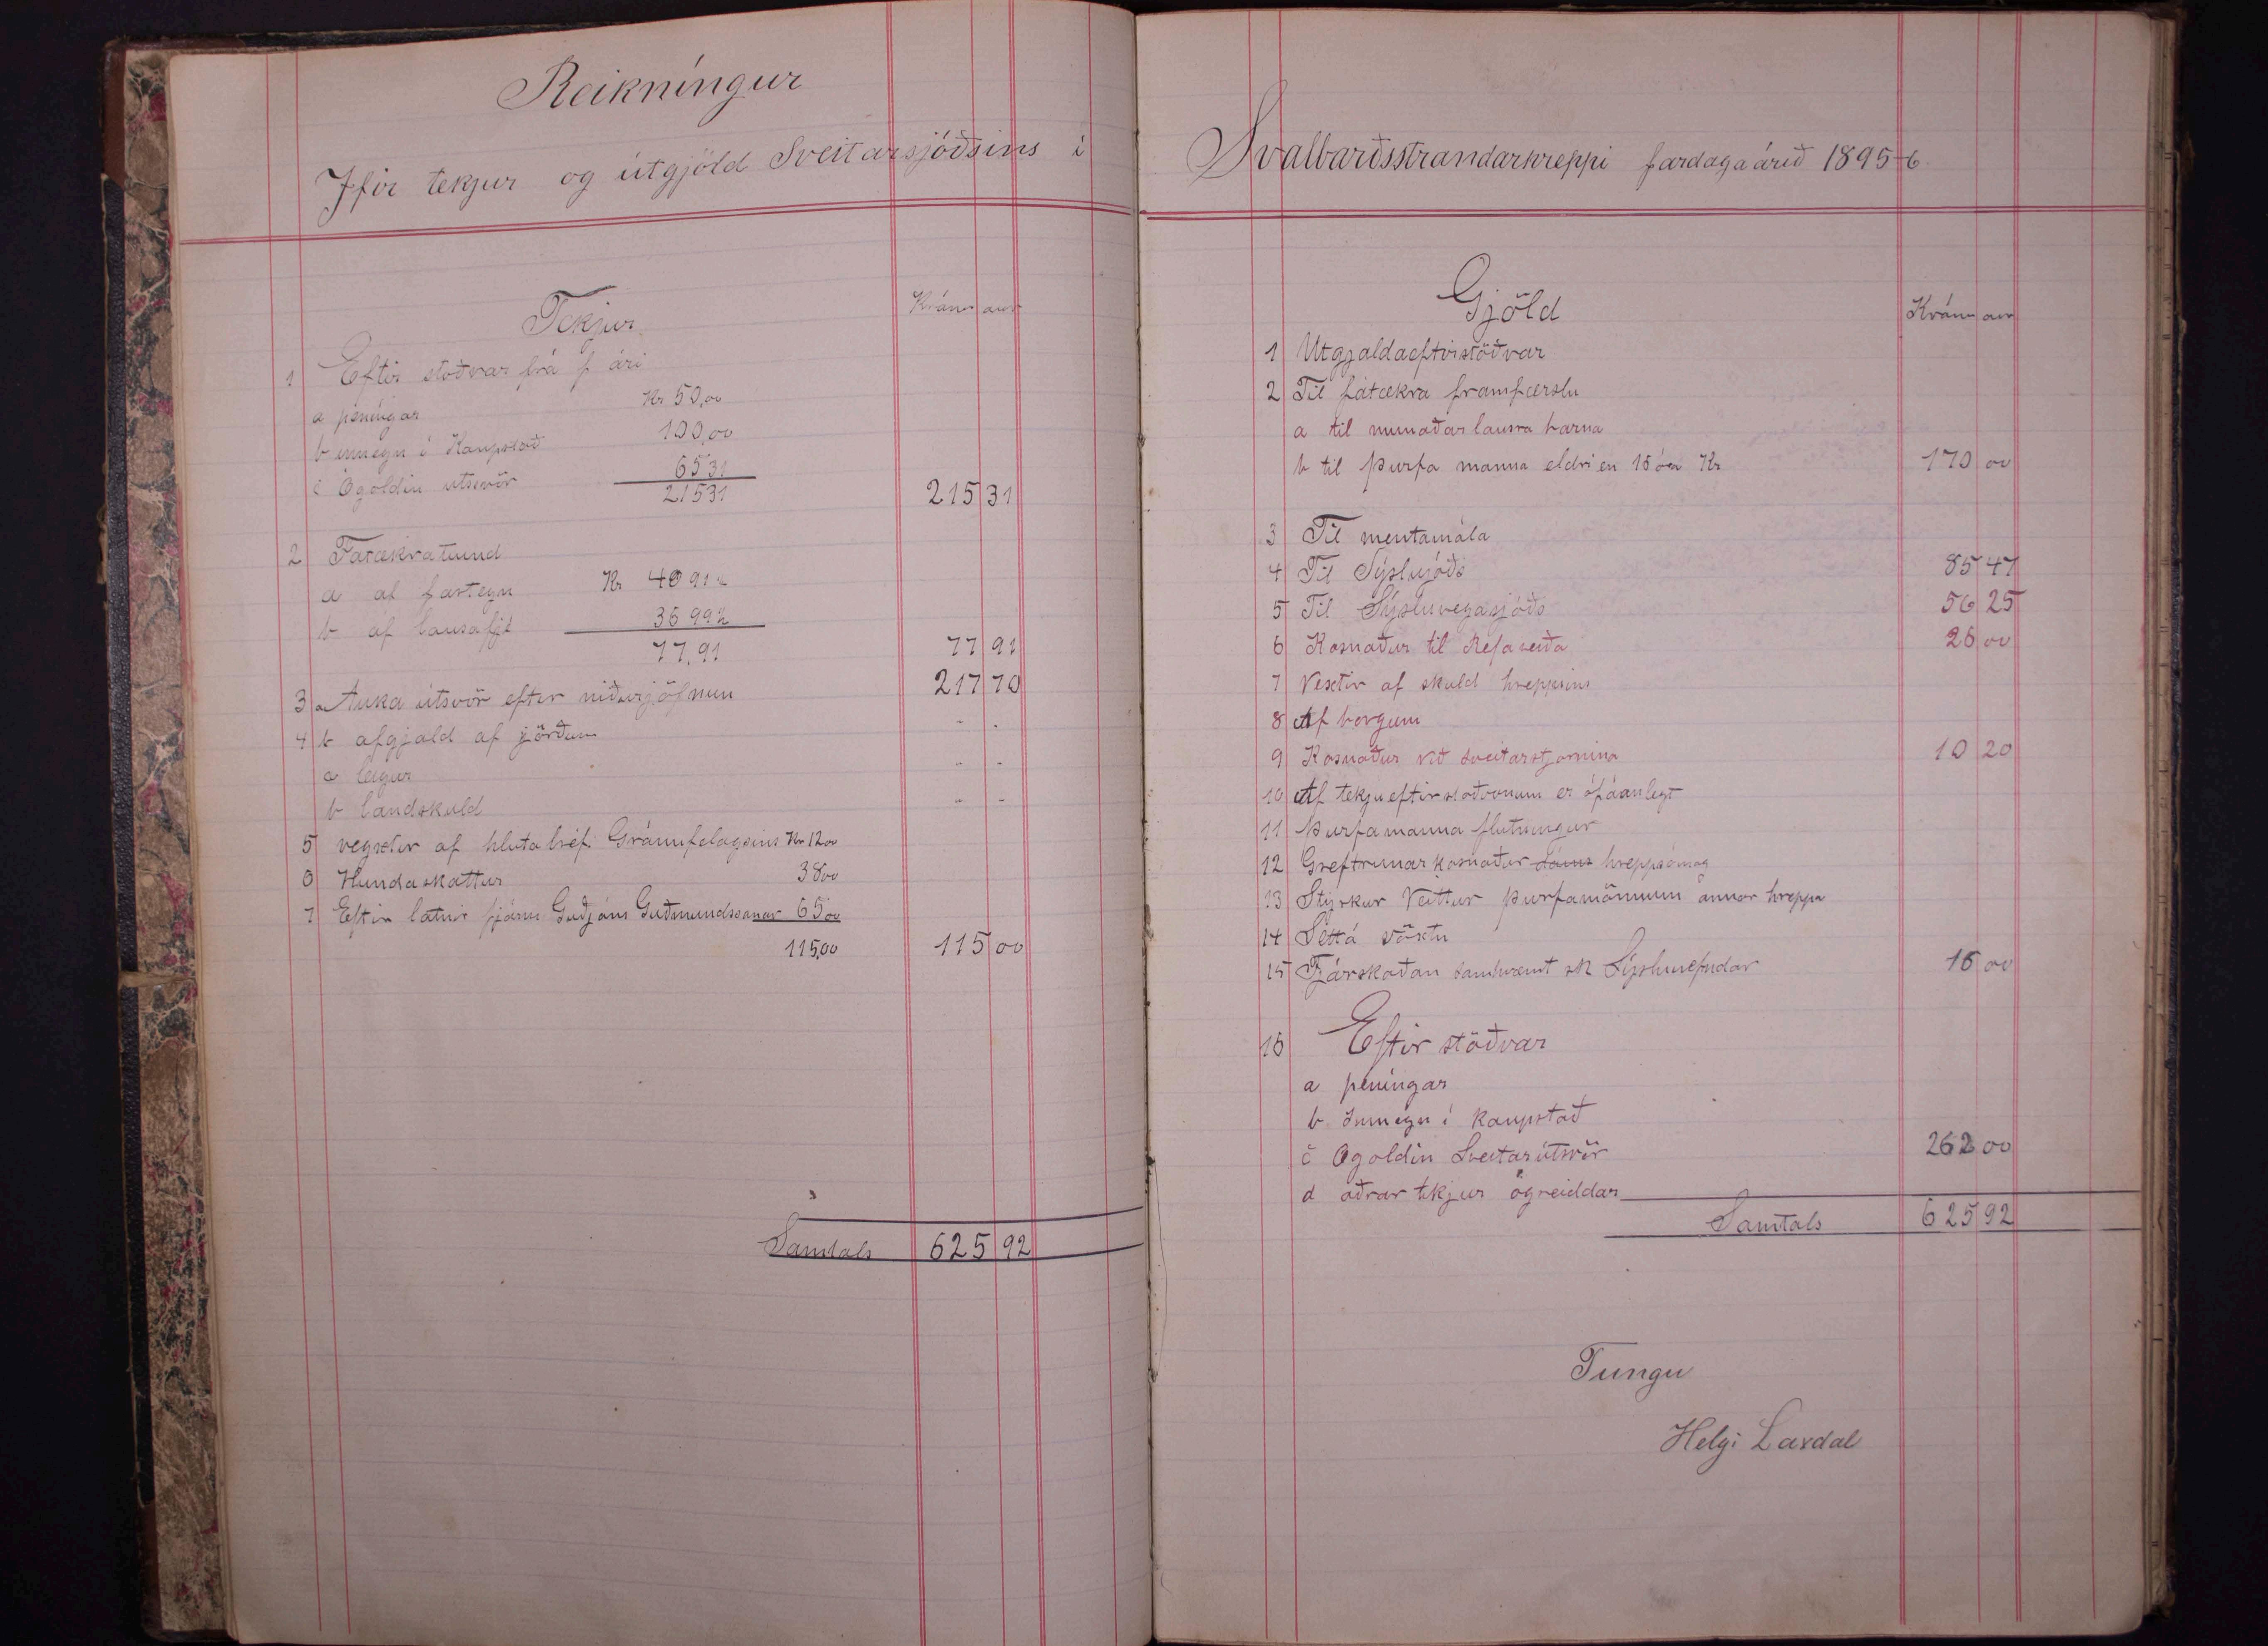 Reikníngur
Ifir tekjur og útgjöld Sveitarsjóðsins í
Tekjur
Krónur aur
1 Eftir stoðvar frá f ári
a peníngar Kr 50,00
b innegn í Kaupstað 100,00
c Ogoldin utsvör 6531
21531 215 31
2 Fatækratiund
a af fastegn Kr 40 91 ½
b af lausafjé 36 99 ½
77,91 77 91
3 a Auka útsvör eftir niðurjöfnun 217 70
4 b afgjald af jörðum " -
a leigur " -
b landskuld " -
5 vegstir af hluta bréfi Gránufelagsins Kr 12 00
6 Hundaskattur 38 00
7 Eftir látnir fjárm Guðjóns Guðmundssonar 65 00
115,00 115 00
Samtals 625 92
Svalbarðsstrandarhreppi fardagaárið 1895-6
Gjöld
Krónur aur
1 Utgjaldaeftirstöðvar
2 Til fátækra framfærslu
a til munaðarlausra barna
b til þurfa manna eldri en 16 ára Kr 170 00
3 Til mentamála
4 Til Sýslusjóðs 85 47
5 Til Sýsluvegasjóðs 56 25
6 Kosnaður til Refaveiða 26 00
7 Vextir af skuld hreppsins
8 Af borgum
9 Kosnaður við sveitarstjornina 10 20
10 Af tekjueftirstoðvonum er ófáanlegt
11 Þurfamanna flutningur
12 Greftrunar kosnaður hreppsómag
13 Styrkur Veittur þurfamönnum annar hreppa
14 Sett á vöxtu
15 Fjárskaðan samkvæmt sk Sýslunefndar 16 00
16 Eftir stöðvar
a peníngar
b Innegn í kaupstað
c Ogoldin Sveitarútsvör 262 00
d aðrar tekjur ógreiddar
Samtals 625 92
Tungu
Helgi Laxdal